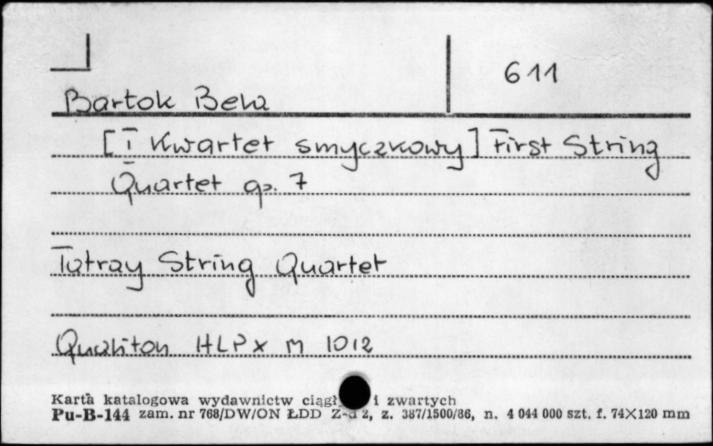 611
Bartok Bela
[I Kwartet smyczkowy] First String
Quartet op. 7
Tatray String Quartet
Qualiton HLPx M 1012
Karta katalogowa wydawnictw ciągł i zwartych
Pu-B-144 zam. nr 768/DW/ON ŁDD z, z. 387/1500/86, n. 4 044 000 szt. f. 74×120 mm